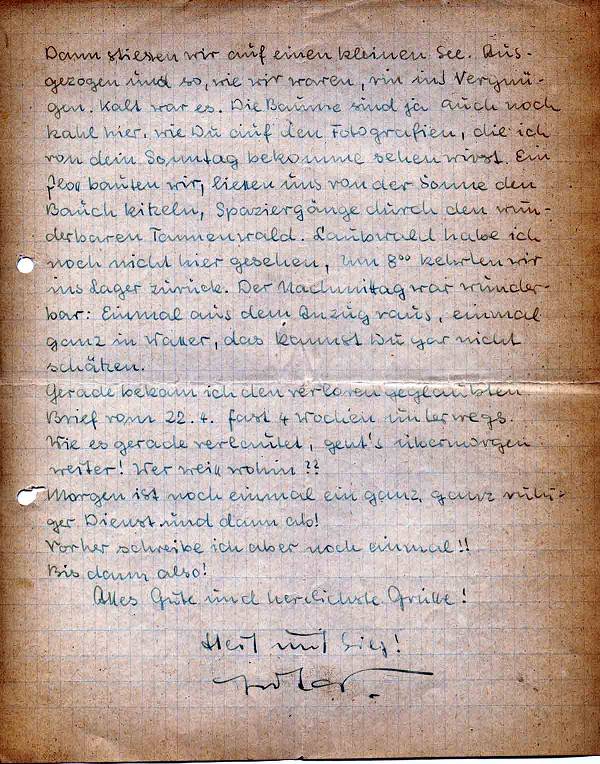 Dann stiessen wir auf einen kleinen See. Aus-
gezogen und so, wie wir waren, rin ins Vergnü-
gen. Kalt war es. Die Bäume sind ja auch noch
kahl hier. wie Du auf den Fotografien, die ich
von dem Sonntag bekomme sehen wirst. Ein
Floss bauten wir, liessen uns von der Sonne den
Bauch kitzeln, Spaziergänge durch den wun-
derbaren Tannenwald. Laubwald habe ich
noch nicht hier gesehen, Um 8⁰⁰ kehrten wir
ins Lager zurück. Der Nachmittag war wunder-
bar: Einmal aus dem Anzug raus, einmal
ganz in Wasser, das kannst Du gar nicht
schätzen.
Gerade bekam ich den verloren geglaubten
Brief vom 22.4. fast 4 Wochen unterwegs.
Wie es gerade verlautet, geht's übermorgen
weiter! Wer weiss wohin??
Morgen ist noch einmal ein ganz, ganz ruhi-
ger Dienst und dann ab!
Vorher schreibe ich aber noch einmal!!
Bis dann also!
Alles Gute und herzlichste Grüsse!
Heil und Sieg!